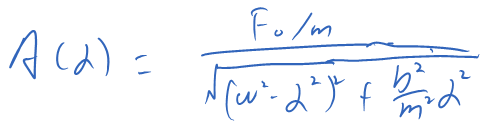 A(α) = \frac{F_0/m}{\sqrt{(ω^2 - α^2)^2 + \frac{b^2}{m^2} α^2}}